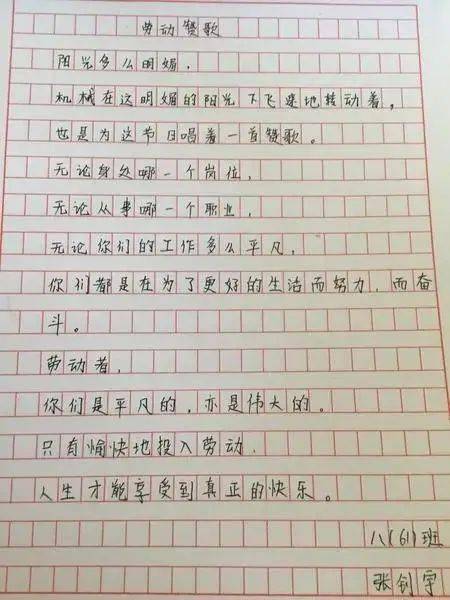 劳动赞歌
阳光多么明媚，
机械在这明媚的阳光下飞速地转动着，
也是为这节日唱着一首赞歌。
无论身处哪一个岗位，
无论从事哪一个职业，
无论你们的工作多么平凡，
你们都是在为了更好的生活而努力，而奋
斗。
劳动者，
你们是平凡的，亦是伟大的。
只有愉快地投入劳动，
人生才能享受到真正的快乐。
八(61)班
张钊宇